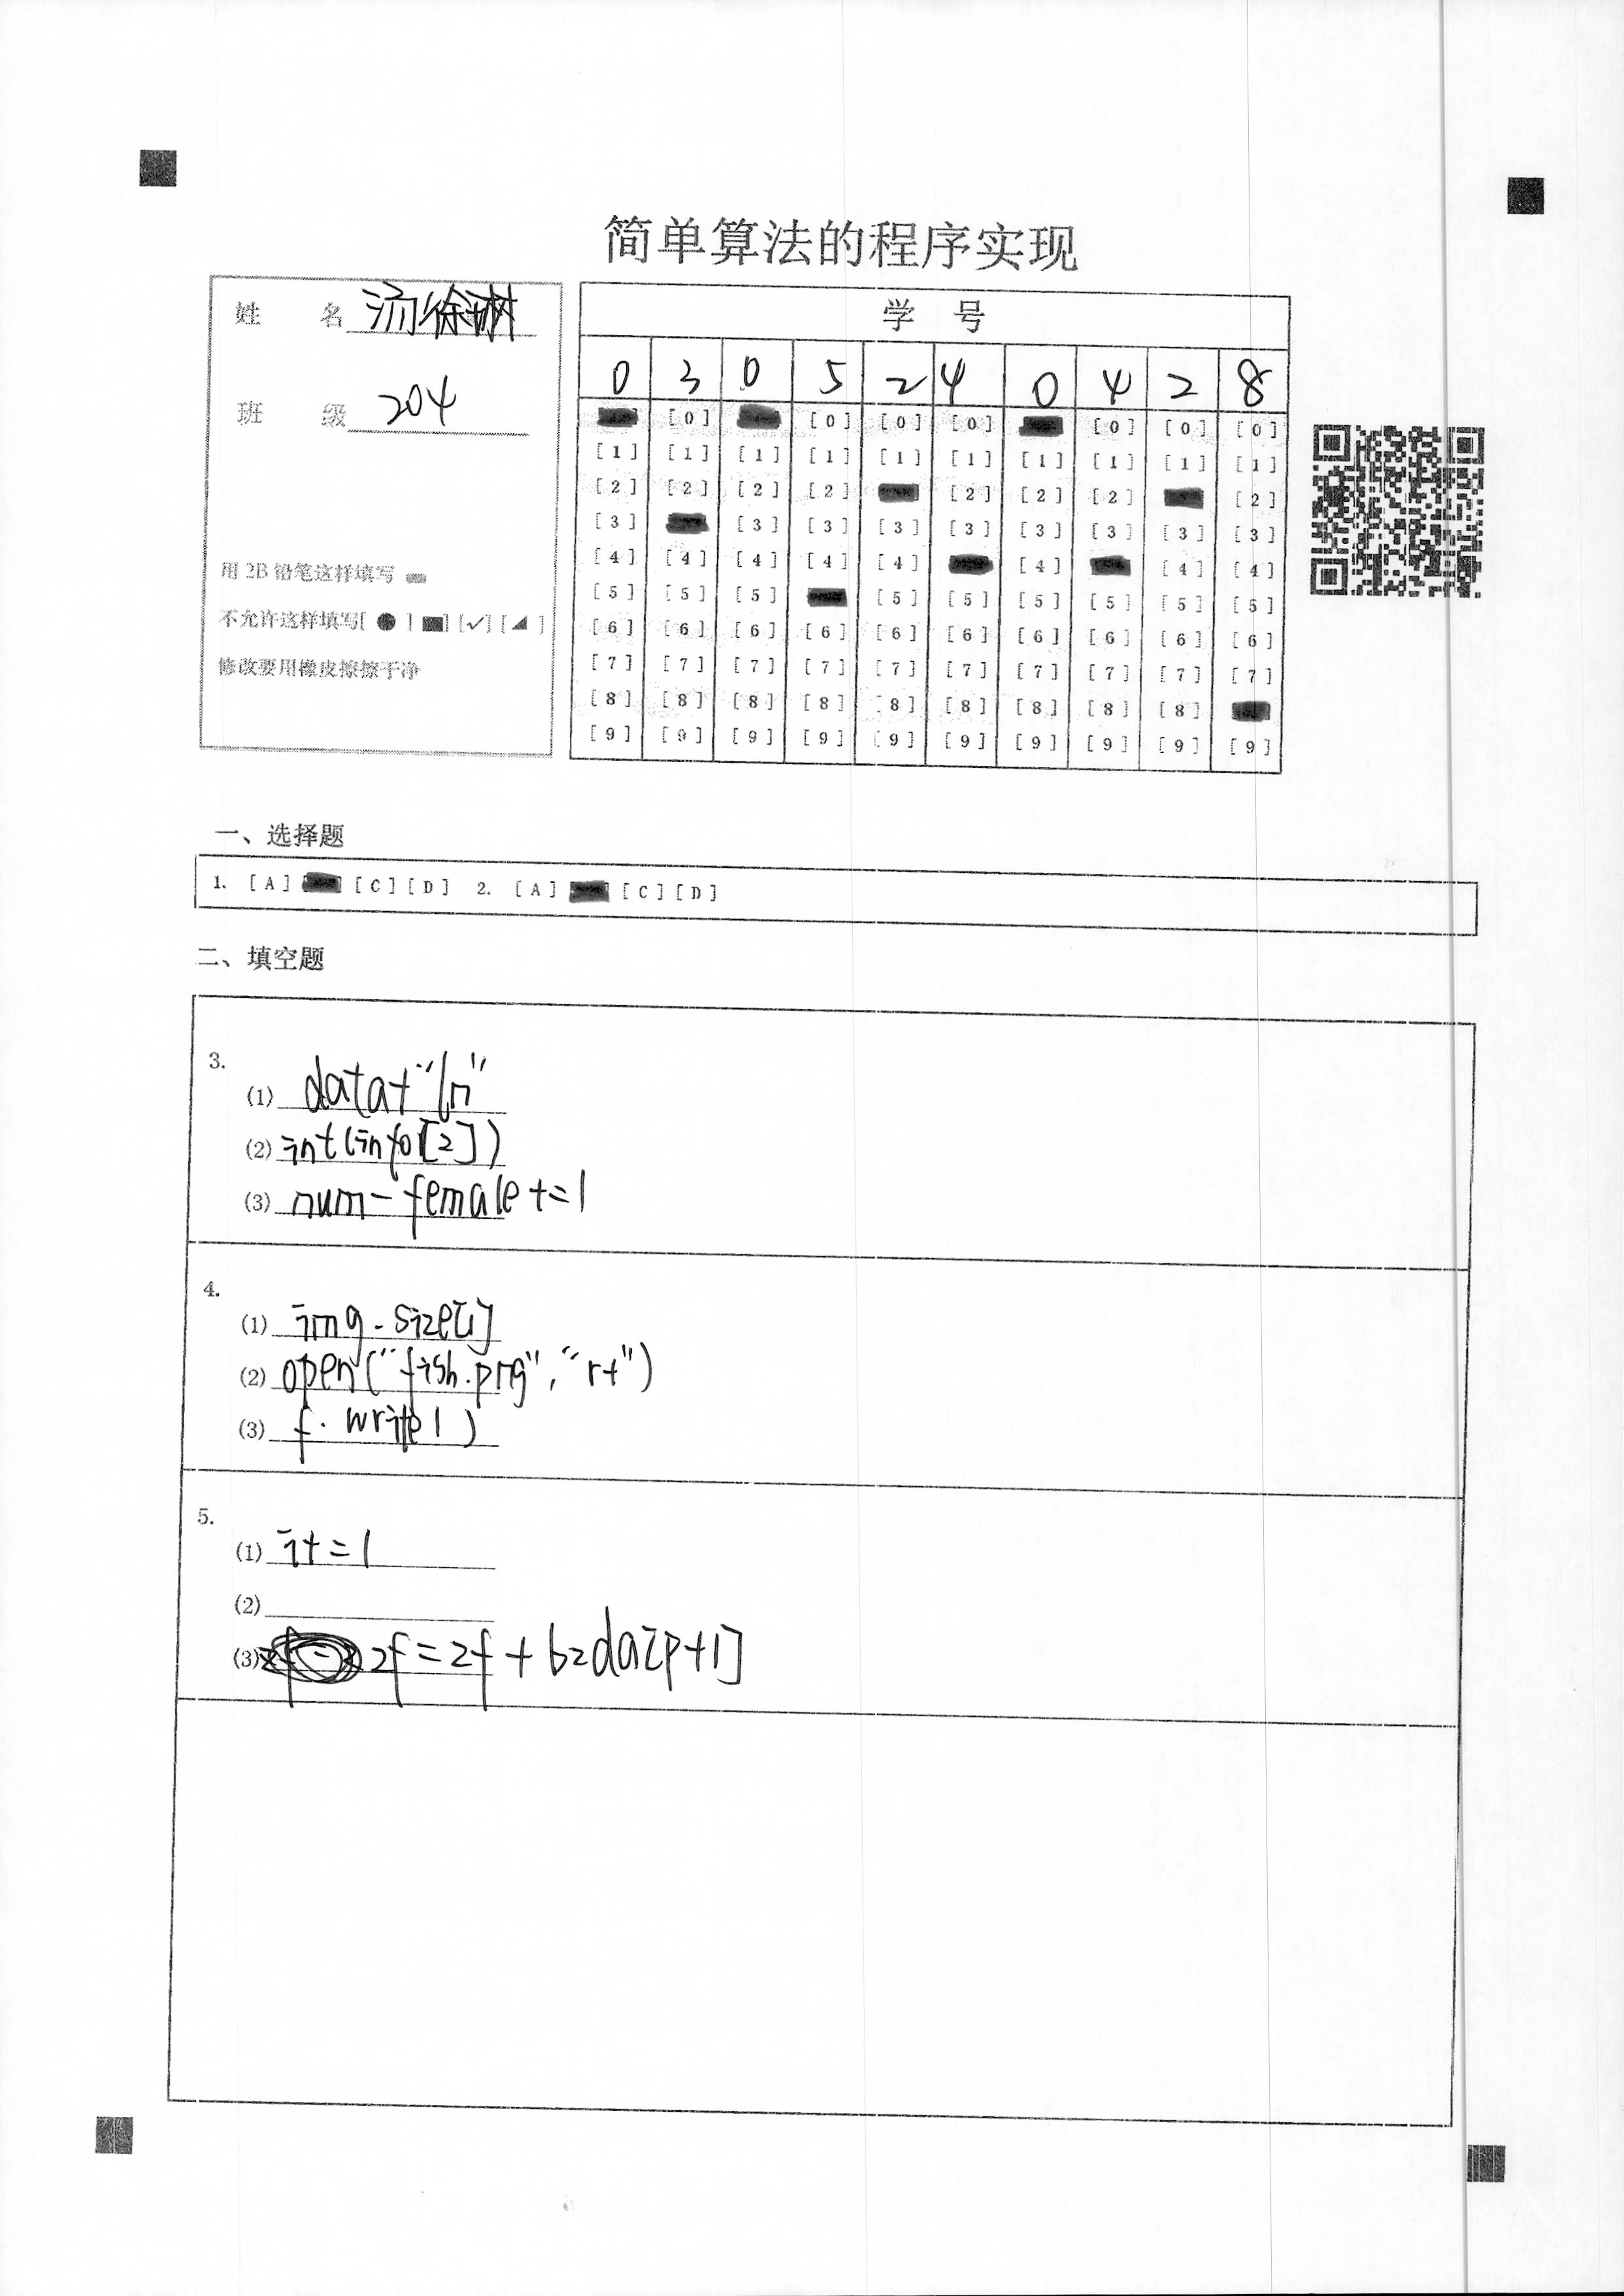 简单算法的程序实现
姓 名
班 级 204
用 2B 铅笔这样填写
不允许这样填写[ ● ] [■] [✓] [◢ ]
修改要用橡皮擦擦干净
学 号
0 3 0 5 2 4 0 4 2 8
[0] [0] [0] [0] [0] [0] [0]
[1] [1] [1] [1] [1] [1] [1] [1] [1] [1]
[2] [2] [2] [2] [2] [2] [2] [2]
[3] [3] [3] [3] [3] [3] [3] [3] [3]
[4] [4] [4] [4] [4] [4] [4] [4]
[5] [5] [5] [5] [5] [5] [5] [5] [5]
[6] [6] [6] [6] [6] [6] [6] [6] [6] [6]
[7] [7] [7] [7] [7] [7] [7] [7] [7] [7]
[8] [8] [8] [8] [8] [8] [8] [8] [8]
[9] [9] [9] [9] [9] [9] [9] [9] [9] [9]
一、选择题
1. [A] [C] [D] 2. [A] [C] [D]
二、填空题
3.
(1) data+"\n"
(2) int(info[2])
(3) num-female+=1
4.
(1) img.size[1]
(2) open("fish.png","r+")
(3) f.write()
5.
(1) i+=1
(2)
(3) zf=zf+bzda[p+1]